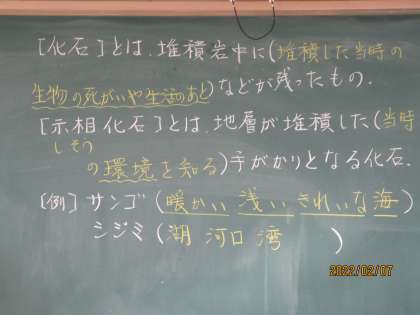 [化石]とは、堆積岩中に(堆積した当時の
生物の死がいや生活のあと)などが残ったもの.
[示相化石]とは、地層が堆積した(当時
しそう
の環境を知る)手がかりとなる化石.
[例] サンゴ(暖かい 浅い きれいな海)
シジミ(湖 河口 湾 )
2022/02/07